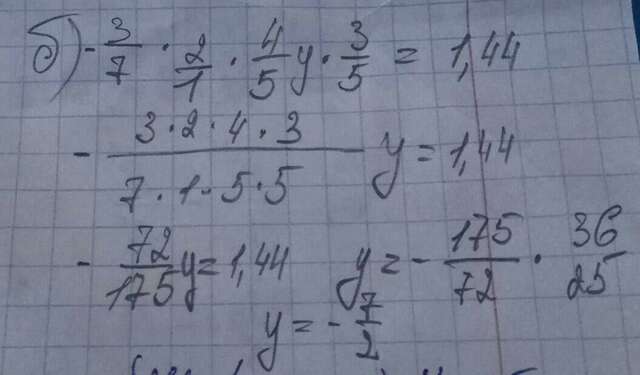 б) - 3/7 · 2/1 · 4/5 y · 3/5 = 1,44
- (3·2·4·3)/(7·1·5·5) y = 1,44
- 72/175 y = 1,44   y = - 175/72 · 36/25
y = - 7/2